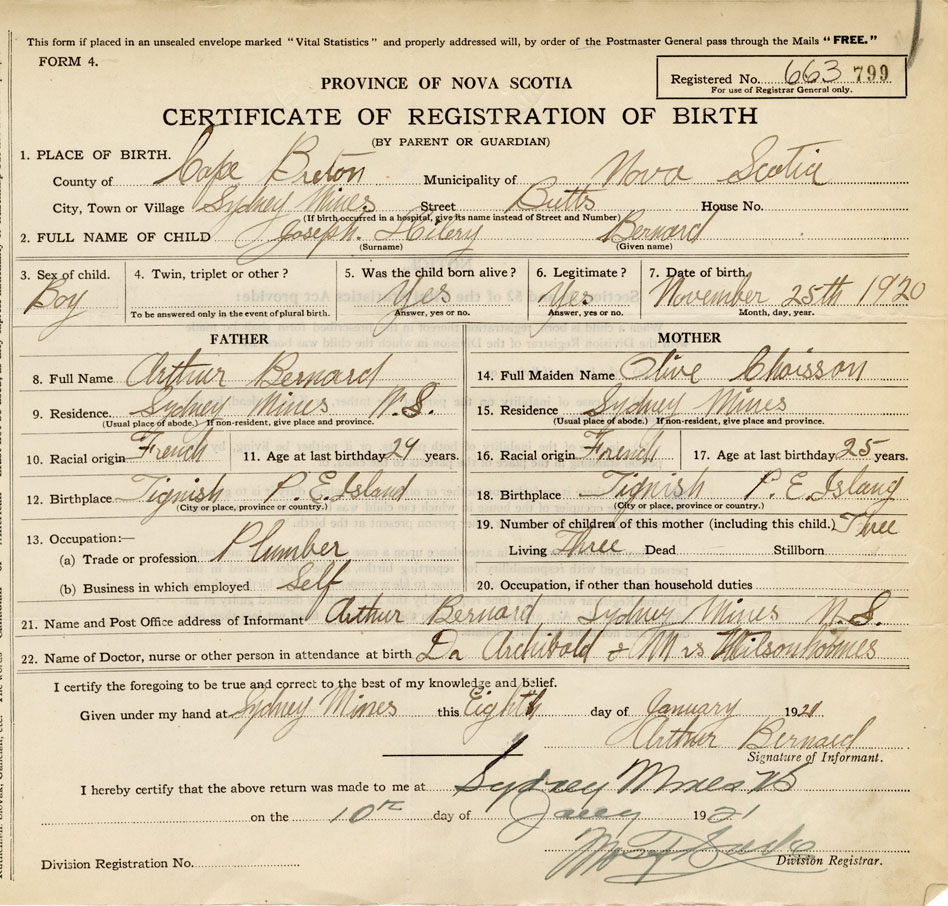 This form if placed in an unsealed envelope marked "Vital Statistics" and properly addressed will, by order of the Postmaster General pass through the Mails "FREE."
FORM 4.
Registered No. 663 799
For use of Registrar General only.
PROVINCE OF NOVA SCOTIA
CERTIFICATE OF REGISTRATION OF BIRTH
(BY PARENT OR GUARDIAN)
1. PLACE OF BIRTH.
County of Cape Breton Municipality of Nova Scotia
City, Town or Village Sydney Mines Street Butts House No.
(If birth occurred in a hospital, give its name instead of Street and Number)
2. FULL NAME OF CHILD Joseph. Hilery Bernard
(Surname) (Given name)
3. Sex of child. 4. Twin, triplet or other? 5. Was the child born alive? 6. Legitimate? 7. Date of birth.
Boy Yes Yes November 25th 1920
To be answered only in the event of plural birth. Answer, yes or no. Answer, yes or no. Month, day, year.
FATHER
8. Full Name Arthur Bernard
9. Residence. Sydney Mines N.S.
(Usual place of abode.) If non-resident, give place and province.
10. Racial origin French 11. Age at last birthday 29 years.
12. Birthplace Tignish P.E. Island
(City or place, province or country.)
13. Occupation:—
(a) Trade or profession Plumber
(b) Business in which employed Self
MOTHER
14. Full Maiden Name Olive Chaisson
15. Residence Sydney Mines
(Usual place of abode.) If non-resident, give place and province.
16. Racial origin French 17. Age at last birthday 25 years.
18. Birthplace Tignish P.E. Island
(City or place, province or country.)
19. Number of children of this mother (including this child.) Three
Living Three Dead Stillborn
20. Occupation, if other than household duties
21. Name and Post Office address of Informant Arthur Bernard Sydney Mines N.S.
22. Name of Doctor, nurse or other person in attendance at birth Dr Archibald & Mrs Wilson
I certify the foregoing to be true and correct to the best of my knowledge and belief.
Given under my hand at Sydney Mines this Eighth day of January 1921
Arthur Bernard
Signature of Informant.
I hereby certify that the above return was made to me at Sydney Mines NS
on the 10th day of Jany 1921
Division Registration No. Division Registrar.